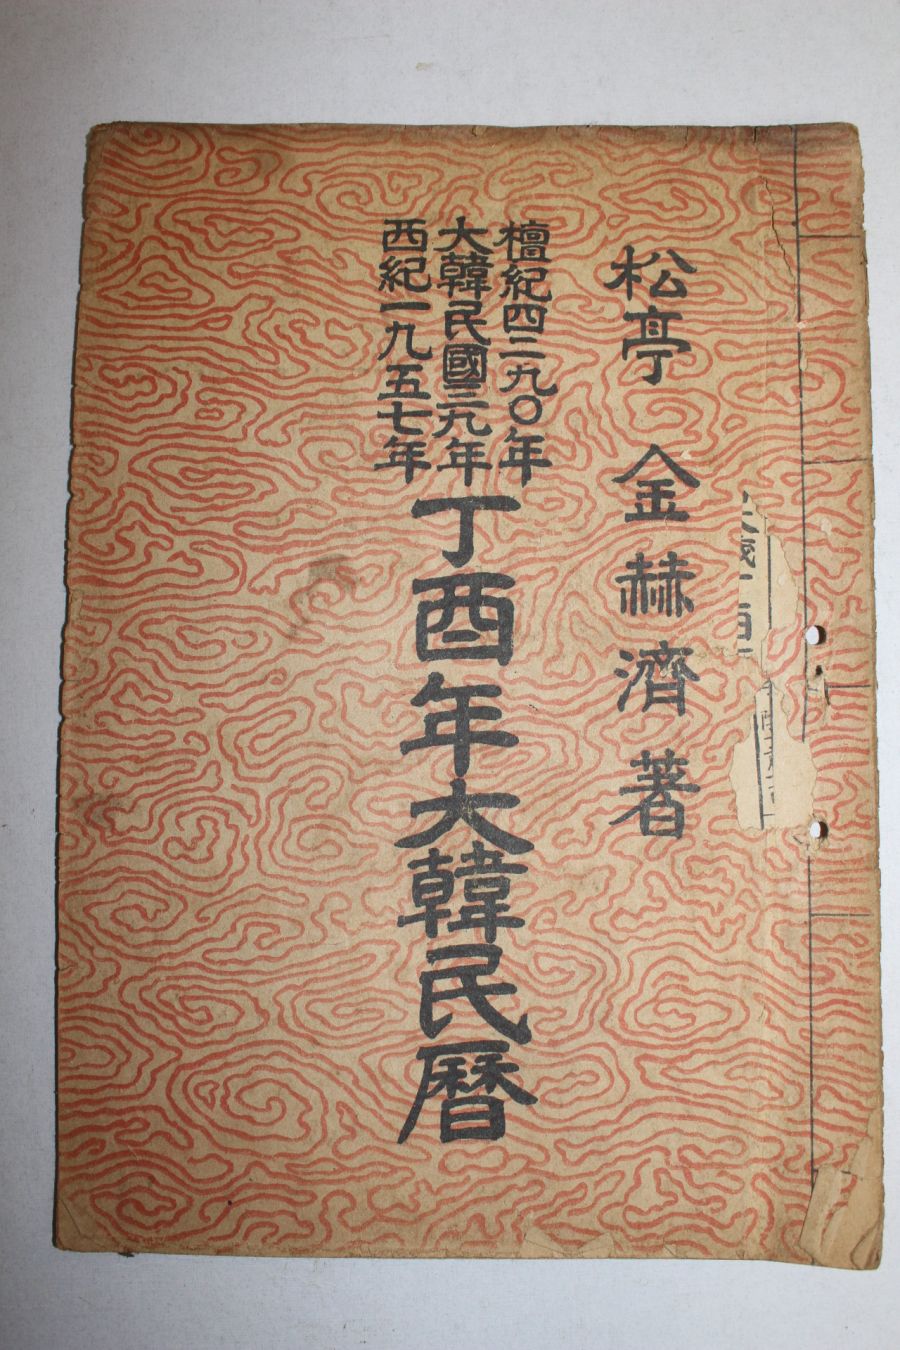 松亭 金赫濟著
檀紀四二九〇年
大韓民國三九年
西紀一九五七年
丁酉年大韓民曆